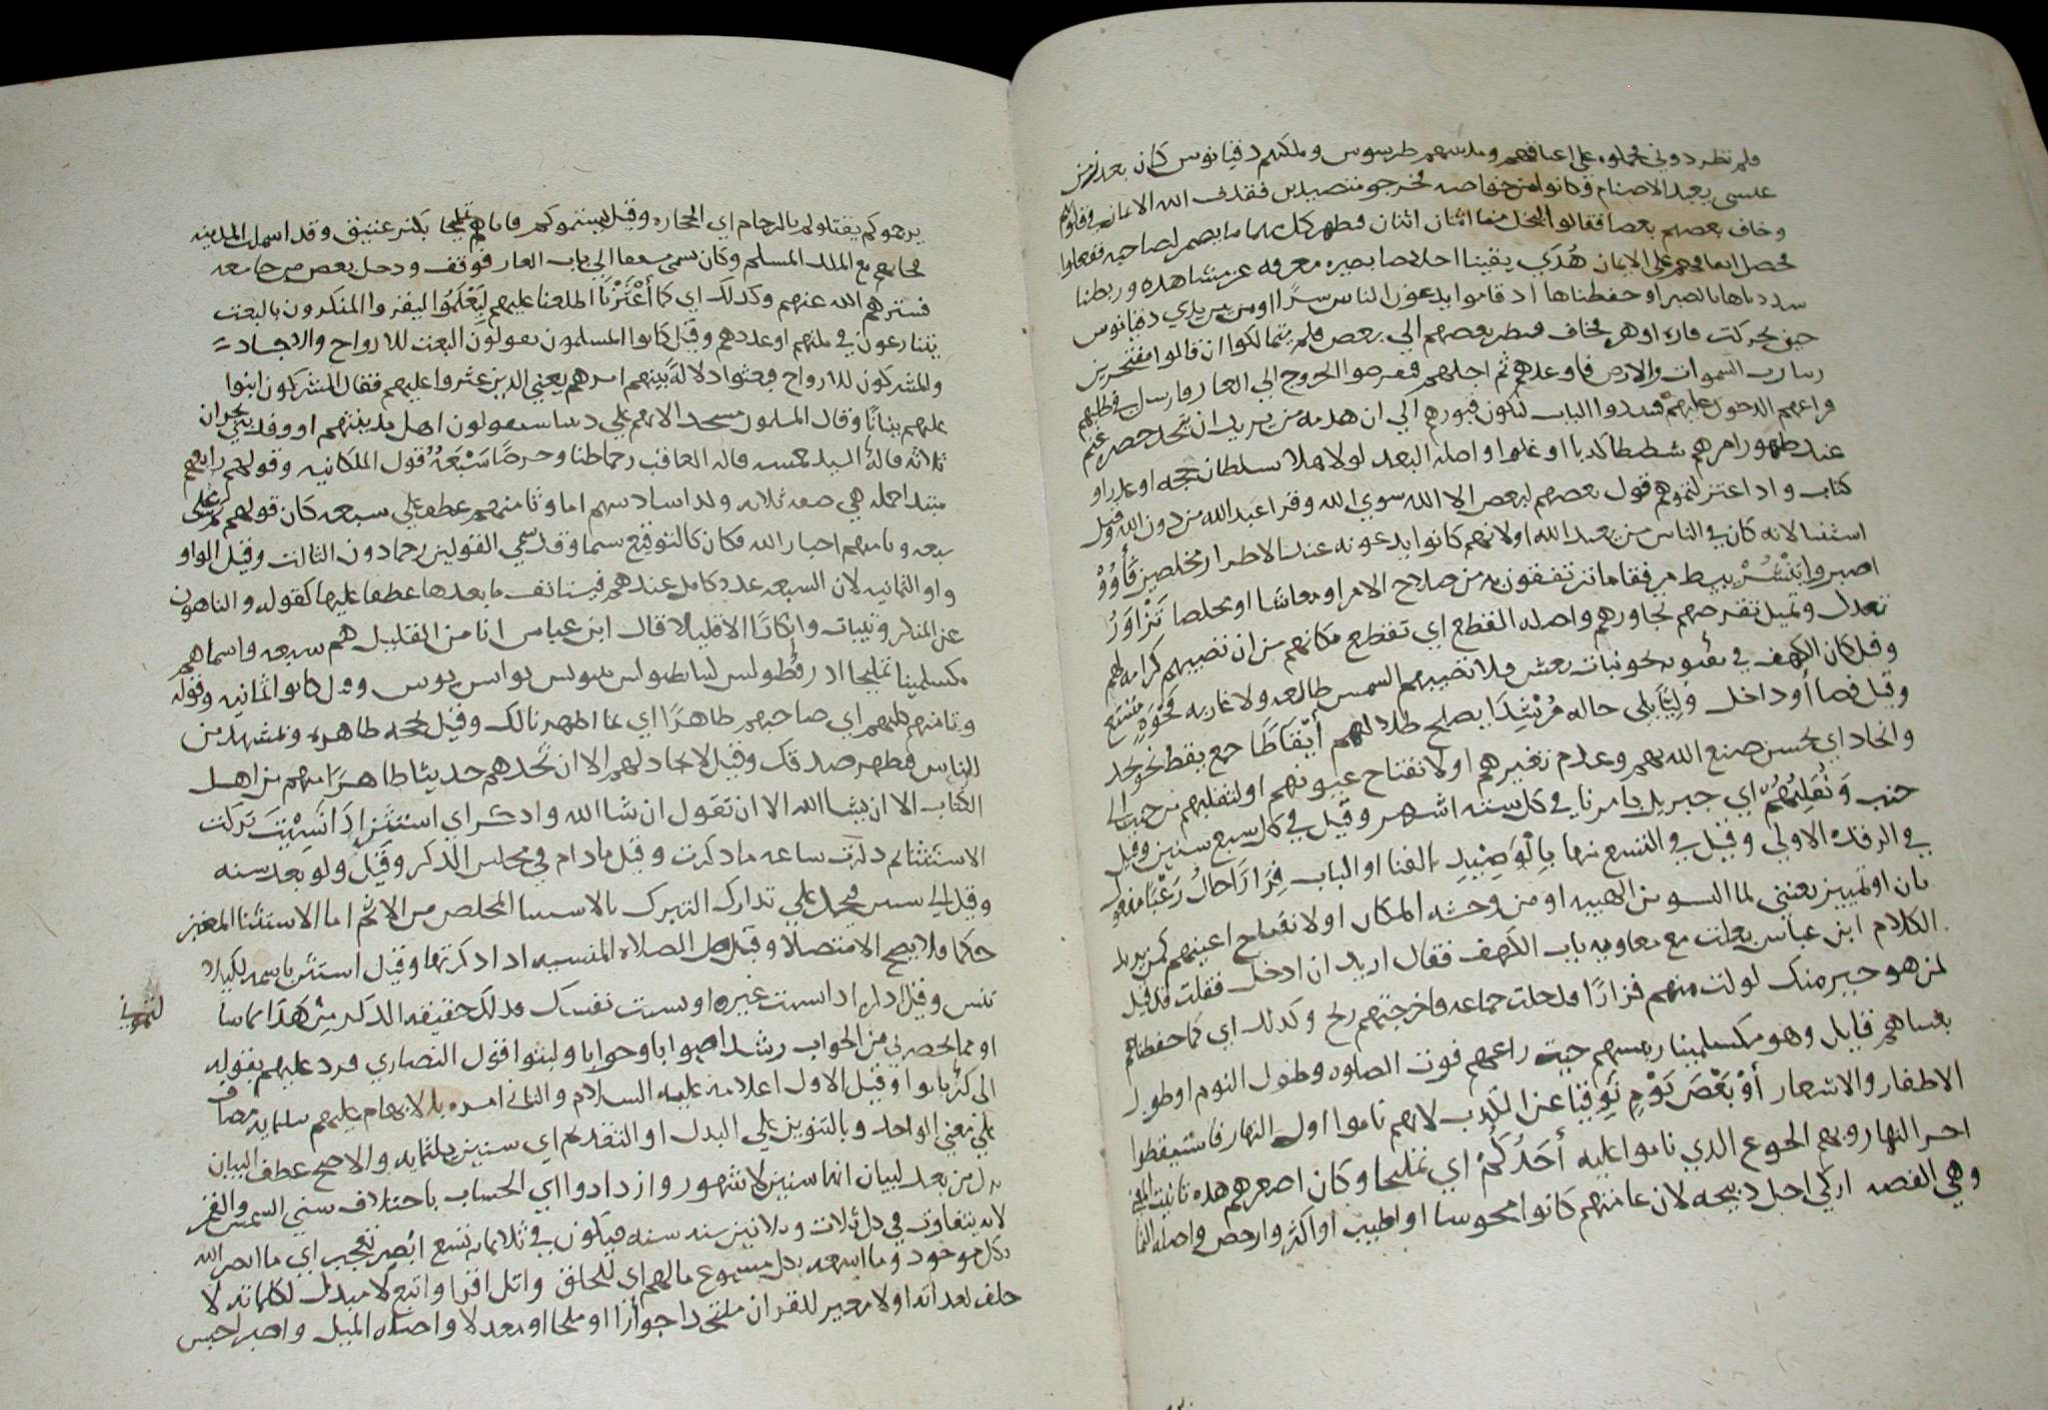 فلم تطردوني فحملوه على اعناقهم ومدينتهم طرسوس وملكهم دقيانوس كان بعد زمن
عيسى يعبد الاصنام وكانوا من خواصه فخرجوا متصيدين فقذف الله الايمان في قلوبهم
وخاف بعضهم بعضا فقالوا ليخل منا اثنان اثنان فيظهر كل منهما ما يضمر لصاحبه ففعلوا
فحصل اتفاقهم على الايمان هُدًى يقينا اخلاصا بصيره معرفه عن مشاهده وربطنا
شددناها بالصبر او حفظناها اذ قاموا يدعون الناس سرًا او من بين يدي دقيانوس
حين تحركت فاره او هره فخاف فنظر بعضهم الي بعض فلم يتمالكوا ان قالوا مفتخرين
ربنا رب السموات والارض فاوعدهم ثم اجلهم فعرضوا الخروج الي الغار وارسل في طلبهم
فراعهم الدخول عليهم فسدوا الباب لتكون قبورهم الي ان هدمه من يريد ان يتخذ حصر غنم
عند ظهور امرهم شططا كذبا او غلوا واصله البعد لولا هلا سلطان حجه او عذر او
كتاب واذ اعتزلتموهم قول بعضهم لبعض الا الله سوي الله وقرا عبد الله من دون الله وقيل
استثنا لانه كان في الناس من يعبد الله او لانهم كانوا يدعونه عند الاضطرار مخلصين فَأوُوْ
اصبروا يَنْشُرْ يبسط مرفقا ما ترتفقون به من صلاح الامر او معاشا او مخلصا تَزَاوَرُ
تعدل وتميل تقرضهم تجاورهم واصله القطع اي تقطع مكانهم من ان تصيبهم كرامه لهم
وقيل كان الكهف في نحو بنات نعش فلا تصيبهم الشمس طالعه ولا غاربه فَجْوَةٍ متسع
وقيل فضا او داخل وَلِيًّا يلي حاله مُرْشِدًا يصلح ضلالهم أَيْقَاظًا جمع يقظ نحو نجد
وانجاد اي بحسن صنع الله بهم وعدم تغيرهم او لانفتاح عيونهم او لتقلبهم من جنب الى
جنب وَنُقَلِّبُهُمْ اي جبريل بامرنا في كل سته اشهر وقيل في كل سبع سنين وقيل
في الرقده الاولي وقيل في التسع منها بِالْوَصِيْدِ بالفنا او الباب فِرَارًا حالُ رَعْبًا مفعول
ثان او تمييز يعني لما البسوا من الهيبه او من وحشه المكان او لانفتاح اعينهم كمن يريد
الكلام ابن عباس بعثت مع معاويه باب الكهف فقال اريد ان ادخل فقلت قد قيل
لمن هو خير منك لوليت منهم فرارًا فدخلت جماعه فاخرجتهم ريح وكذلك اي كما حفظناهم
بعثناهم قايل وهو مكسلمينا رييسهم حيث راعهم فوت الصلوه وطول النوم او طول
الاظفار والاشعار أَوْ بَعْضَ يَوْمٍ تَوقيًا عن الكذب لانهم ناموا اول النهار فاستيقظوا
اخر النهار وبهم الجوع الذي ناموا عليه أَحَدُكُمْ اي تمليخا وكان اصغرهم هذه تانيث المعني
وهي الفضه ازكي احل ذبيحه لان عامتهم كانوا مجوسا او اطيب او اكثر وارخص واصله النما
يرجموكم يقتلوكم بالرجام اي الحجاره وقيل يشتموكم فاتاهم تمليخا بكنز عتيق وقد اسلمت المدينه
فجاءهم مع الملك المسلم وكان يسمى الي باب الغار فوقف ودخل بعض من جا معه
فسترهم الله عنهم وكذلك اي كما أَعْثَرْنَا اطلعنا عليهم لِيَعْلَمُوْا ليقروا المنكرون بالبعث
يتنازعون في ملتهم او عددهم وقيل كانوا المسلمون يقولون البعث للارواح والاجساد
والمشركون للارواح فبعثوا دلالة بَيْنهم امرهم يعني الذين عثروا عليهم فقال المشركون ابنوا
عليهم بنيانًا وقال المسلمون مسجد الانهم علي ديننا سيقولون اهل مدينتهم او وفد نجران
ثلاثه قالهُ السيد خمسه قاله العاقب رجما ظنا وخرصًا سَبْعَةٌ قول الملكانيه وقولهم رابعهم
مبتدا جمله هي صفه ثلاثه وكذا سادسهم اما وثامنهم عطف علي سبعه كان قولهم تم على
سبعه وثامنهم اخبار الله فكان كالتوقيع سيما وقد سمي القولين رجما دون الثالث وقيل الواو
واو الثمانيه لان السبعه عدد كامل عندهم فيستانف ما بعدها عطفا عليها كقوله والناهون
عن المنكر وثيبات وابكارًا الا قليلا قال ابن عباس انا من القليل هم سبعه واسماهم
مكسلمينا تمليخا وقيل كانوا ثمانيه وقوله
وثامنهم كلبهم اي صاحبهم ظاهرًا اي بما اظهرنا لك وقيل بحجه ظاهره وتشهد من
الناس فيظهر صدقك وقيل لا تجادلهم الا ان تُحدثهم حديثا ظاهرًا منهم من اهل
الكتاب الا ان يشا الله الا ان تقول ان شا الله واذكر اي استثن إِذَا نَسِيْتَ تركت
الاستثنا ثم ذكرت ساعه ما ذكرت وقيل ما دام في مجلس الذكر وقيل ولو بعد سنه
وقيل الي سنين فيحمل علي تدارك التبرك بالاستثنا المخلص من الاثم اما الاستثنا المغير
حكما فلا يصح الا متصلا وقيل صل الصلاه المنسيه اذا ذكرتها وقيل استثن باسمه ليلا
تنس وقيل اذكره اذا نسيت غيره او نسيت نفسك فذلك حقيقه الذكر مِنْ هَذَا ما سا
لتموني
او مما يحضرني من الجواب رشدا صوابا وجوابا ولبثوا قول النصاري فرد عليهم بقوله
علي معني الواحد وبالتنوين علي البدل او التقديم اي سنين ثلثمايه والاصح عطف البيان
بدل من بعد لبيان انها سنين لا شهور وازدادوا اي الحساب باختلاف سني الشمس والقمر
لانه يتفاوت في كل ثلاث وثلاثين سنه سنه فيكون في ثلاثمايه تسع ابْصِر تعجب اي ما ابصر الله
بكل موجود وما اسمعه بكل مسموع مالهم اي للخلق واتل اقرا واتبع لا مبدل لكلماته لا
خلف لعداته او لا مغير للقران ملتحدا جوازًا او ملجا او معدلا واصله الميل واصبر احبس